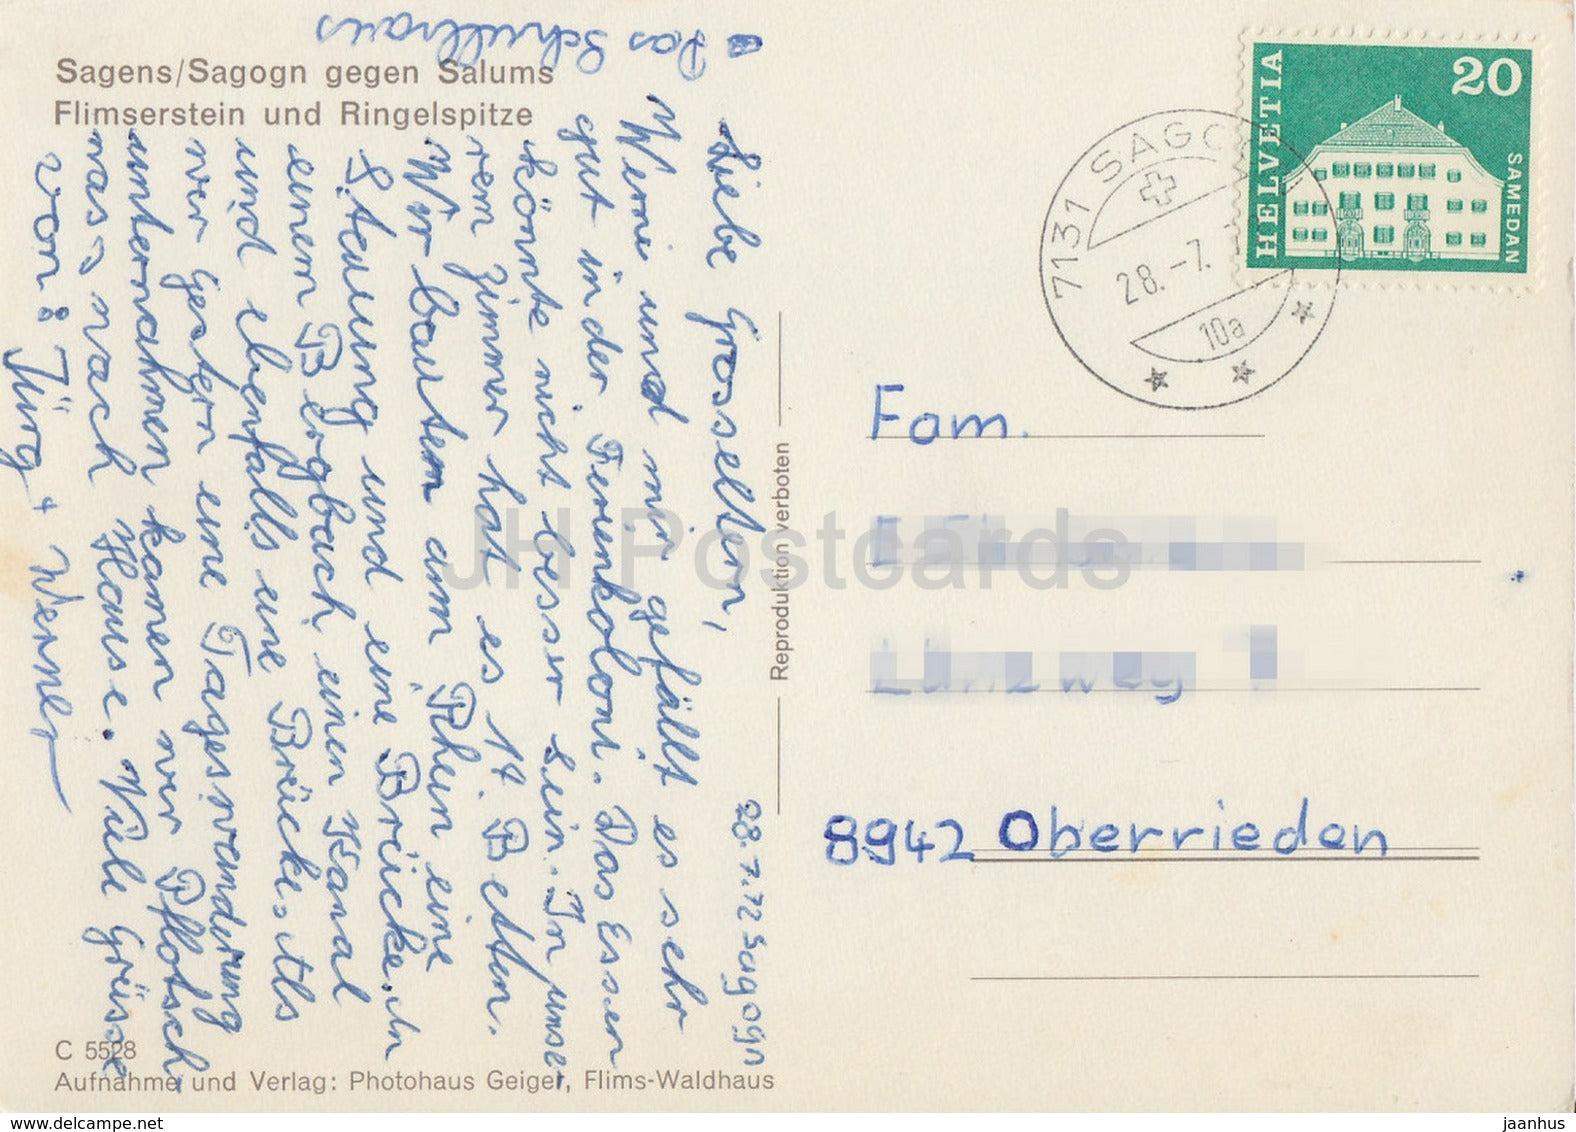 ▪ Das Schulhaus
Sagens/Sagogn gegen Salums
Flimserstein und Ringelspitze
28.7.72 Sagogn
Liebe Grosseltern,
Werni und mir gefällt es sehr
gut in der Ferienkoloni. Das Essen
könnte nicht besser sein. In unse
rem Zimmer hat es 14. Betten.
Wir bauten am Rhein eine
Stauung und eine Brücke. In
einem Bergbach einen Kanal
und ebenfalls eine Brücke. Als
wir gestern eine Tageswanderung
unternahmen kamen wir Pflotsch
nass nach Hause. Viele Grüsse
von: Jürg + Werner
Reproduktion verboten
C 5528
Aufnahme und Verlag: Photohaus Geiger, Flims-Waldhaus
HELVETIA
20
SAMEDAN
7131 SAGO
28.-7.
10a
Fam.
8942 Oberrieden
JH Postcards
delcampe.net
jaanhus